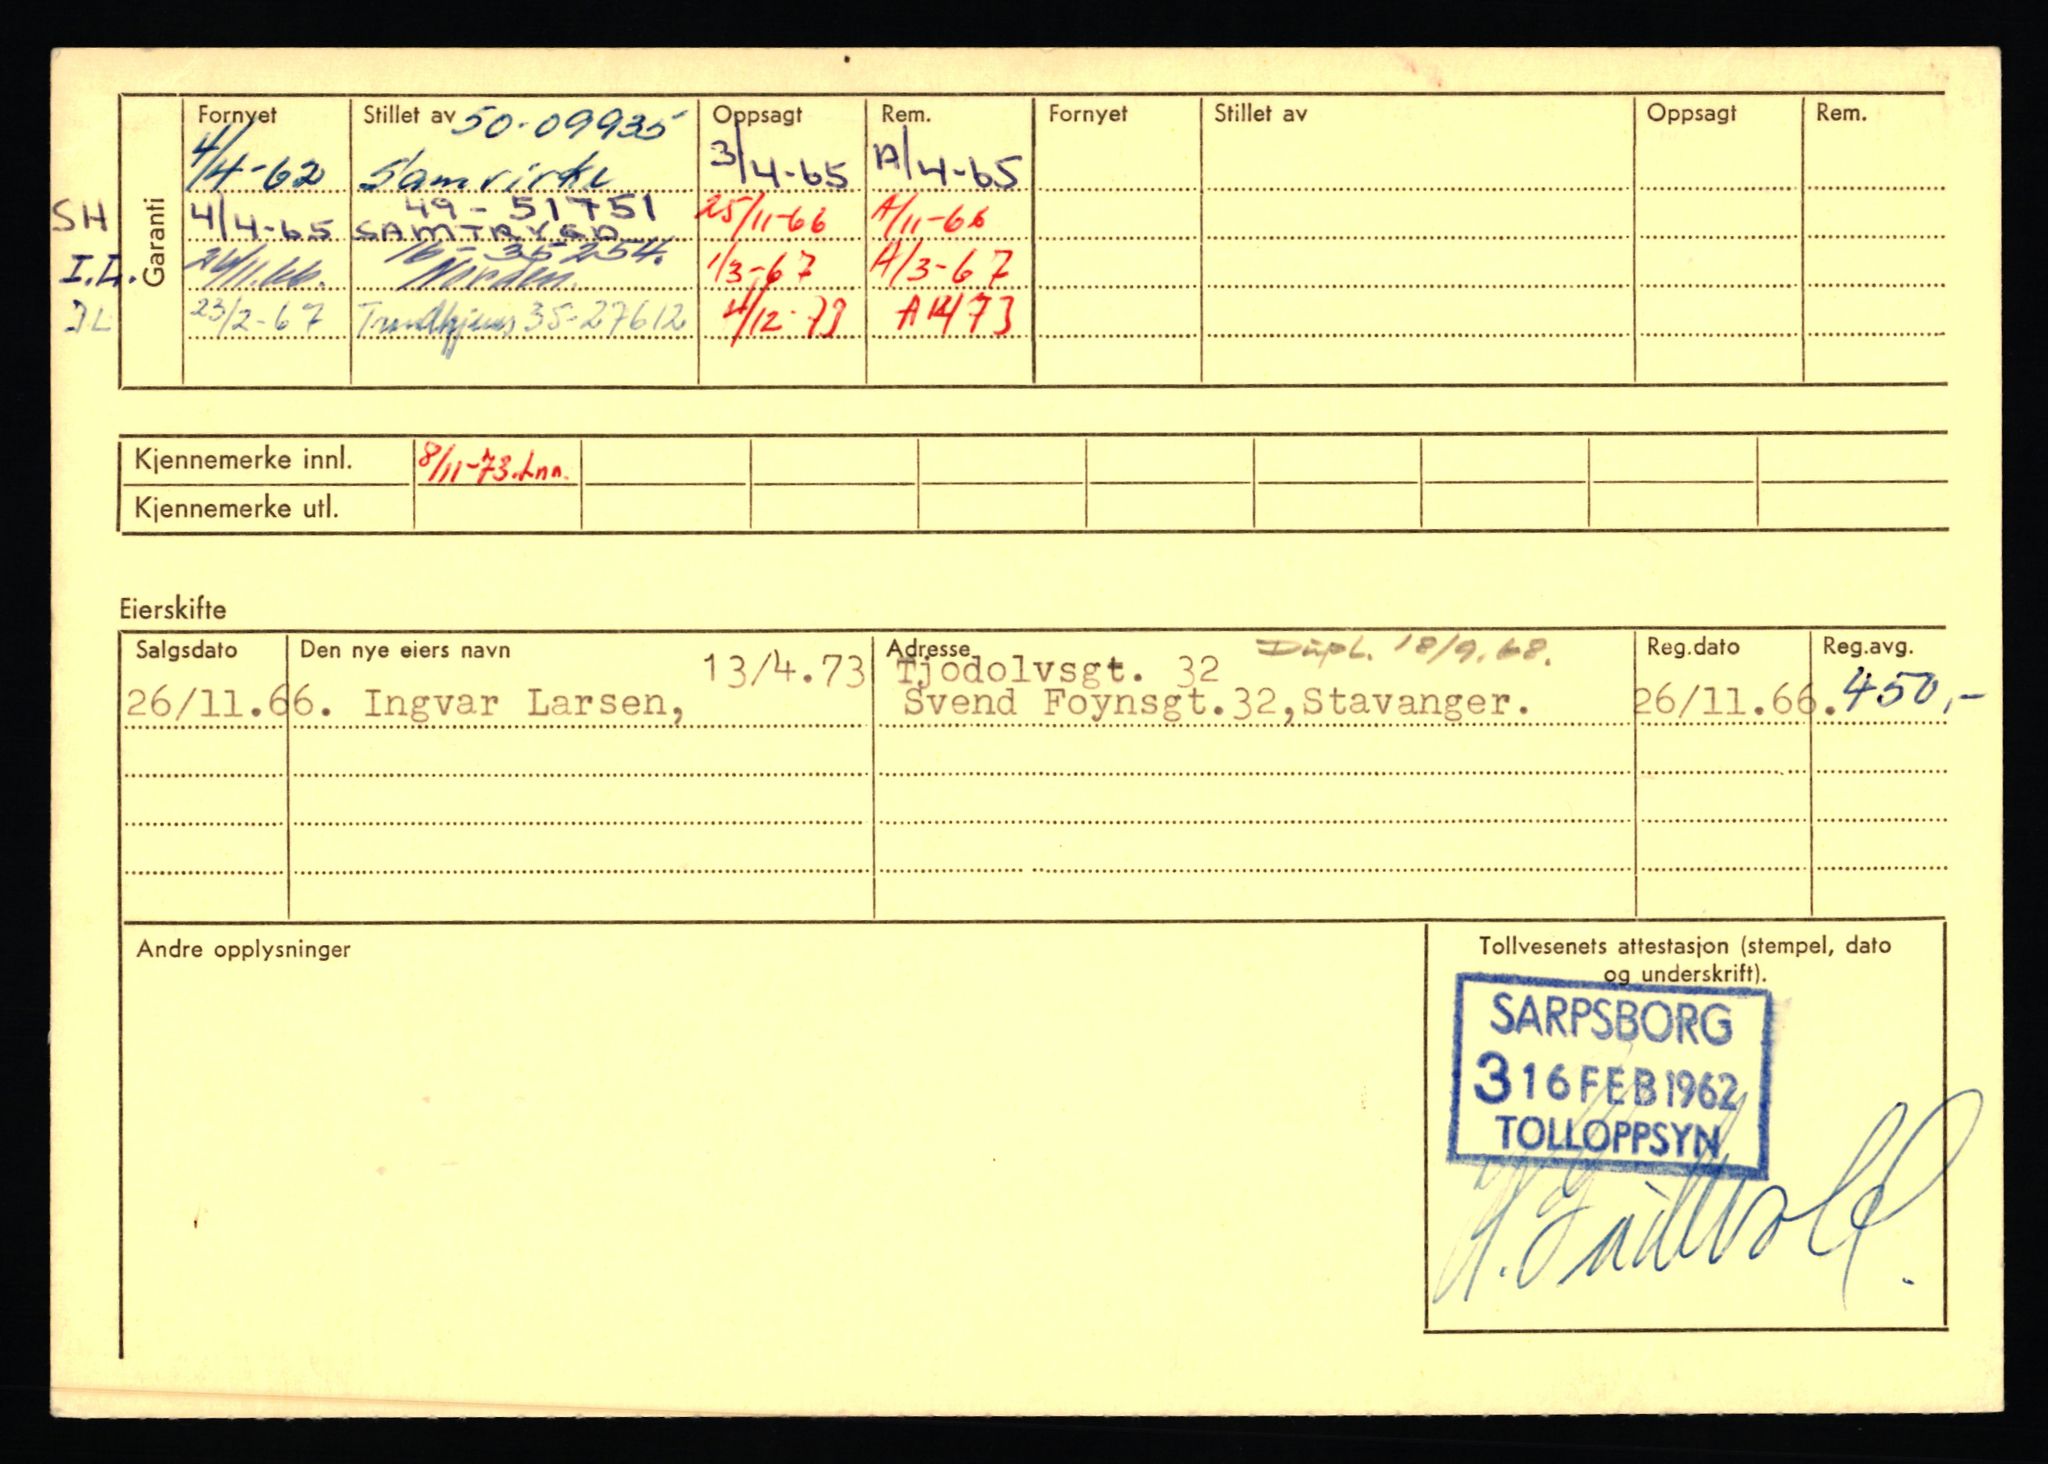 Garanti
Fornyet Stillet av 50-09935 Oppsagt Rem. Fornyet Stillet av Oppsagt Rem.
4/4-62 Samvirke 3/4-65 A/4-65
SH 4/4-65 49-51751 SAMTRYGD 25/11-66 A/11-66
I.L. 26/11.66. 16-35254. Norden. 1/3-67 A/3-67
IL 23/2-67 Trondhjems 35-27612 4/12-73 A 12/73
Kjennemerke innl. 8/11-73.
Kjennemerke utl.
Eierskifte
Salgsdato Den nye eiers navn Adresse Dupl. 18/9.68. Reg.dato Reg.avg.
13/4.73 Tjodolvsgt. 32
26/11.66. Ingvar Larsen, Svend Foynsgt.32,Stavanger. 26/11.66. 450,-
Andre opplysninger
Tollvesenets attestasjon (stempel, dato
og underskrift).
SARPSBORG
3 16 FEB 1962
TOLLOPPSYN